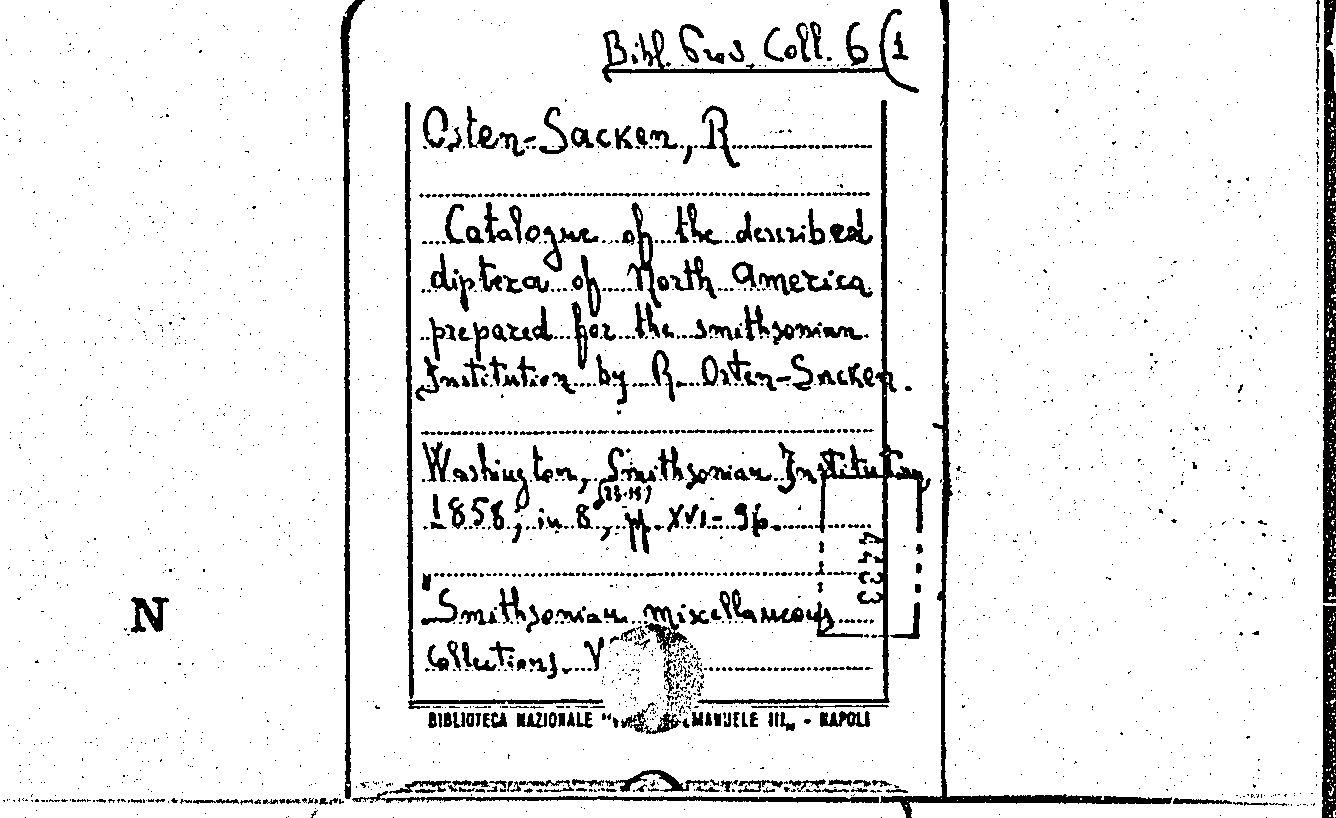 Bibl. Gros. Coll. 6 (1
Osten-Sacken, R
Catalogue of the described
diptera of North America
prepared for the smithsonian
Institution by R. Osten-Sacken.
Washington, Smithsonian Institution,
1858, in 8°, pp. XVI-96.
"Smithsonian miscellaneous
Collections. V
4433
N
BIBLIOTECA NAZIONALE " EMANUELE III„ - NAPOLI